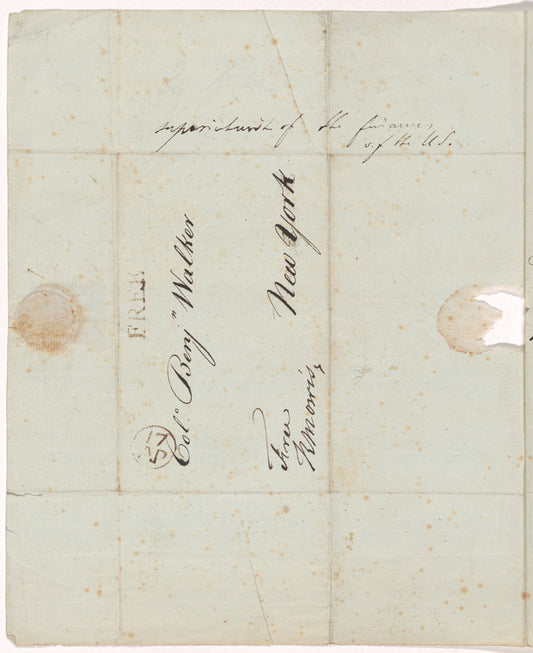 superintendt of the finances
of the US.
FREE
Colo Benjn Walker
New York
Free
RMorris